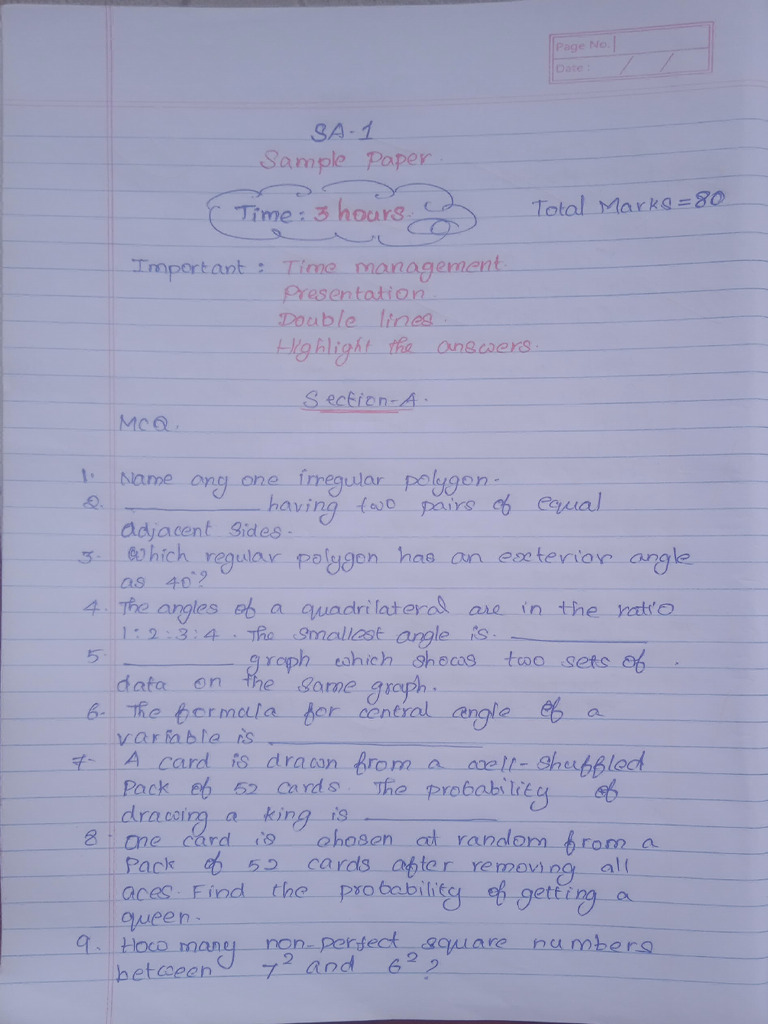 Page No.
Date : / /
SA-1
Sample Paper.
Time: 3 hours.
Total Marks = 80
Important : Time management.
Presentation.
Double lines.
Highlight the answers.
Section-A.
MCQ.
1. Name any one irregular polygon.
2. ________ having two pairs of equal
adjacent sides.
3. Which regular polygon has an exterior angle
as 40°?
4. The angles of a quadrilateral are in the ratio
1:2:3:4. The smallest angle is. ________
5. ________ graph which shows two sets of.
data on the same graph.
6. The formula for central angle of a
variable is ________
7. A card is drawn from a well-shuffled
pack of 52 cards. The probability of
drawing a king is ________
8. One card is chosen at random from a
pack of 52 cards after removing all
aces. Find the probability of getting a
queen.
9. How many non-perfect square numbers
between 7² and 6²?